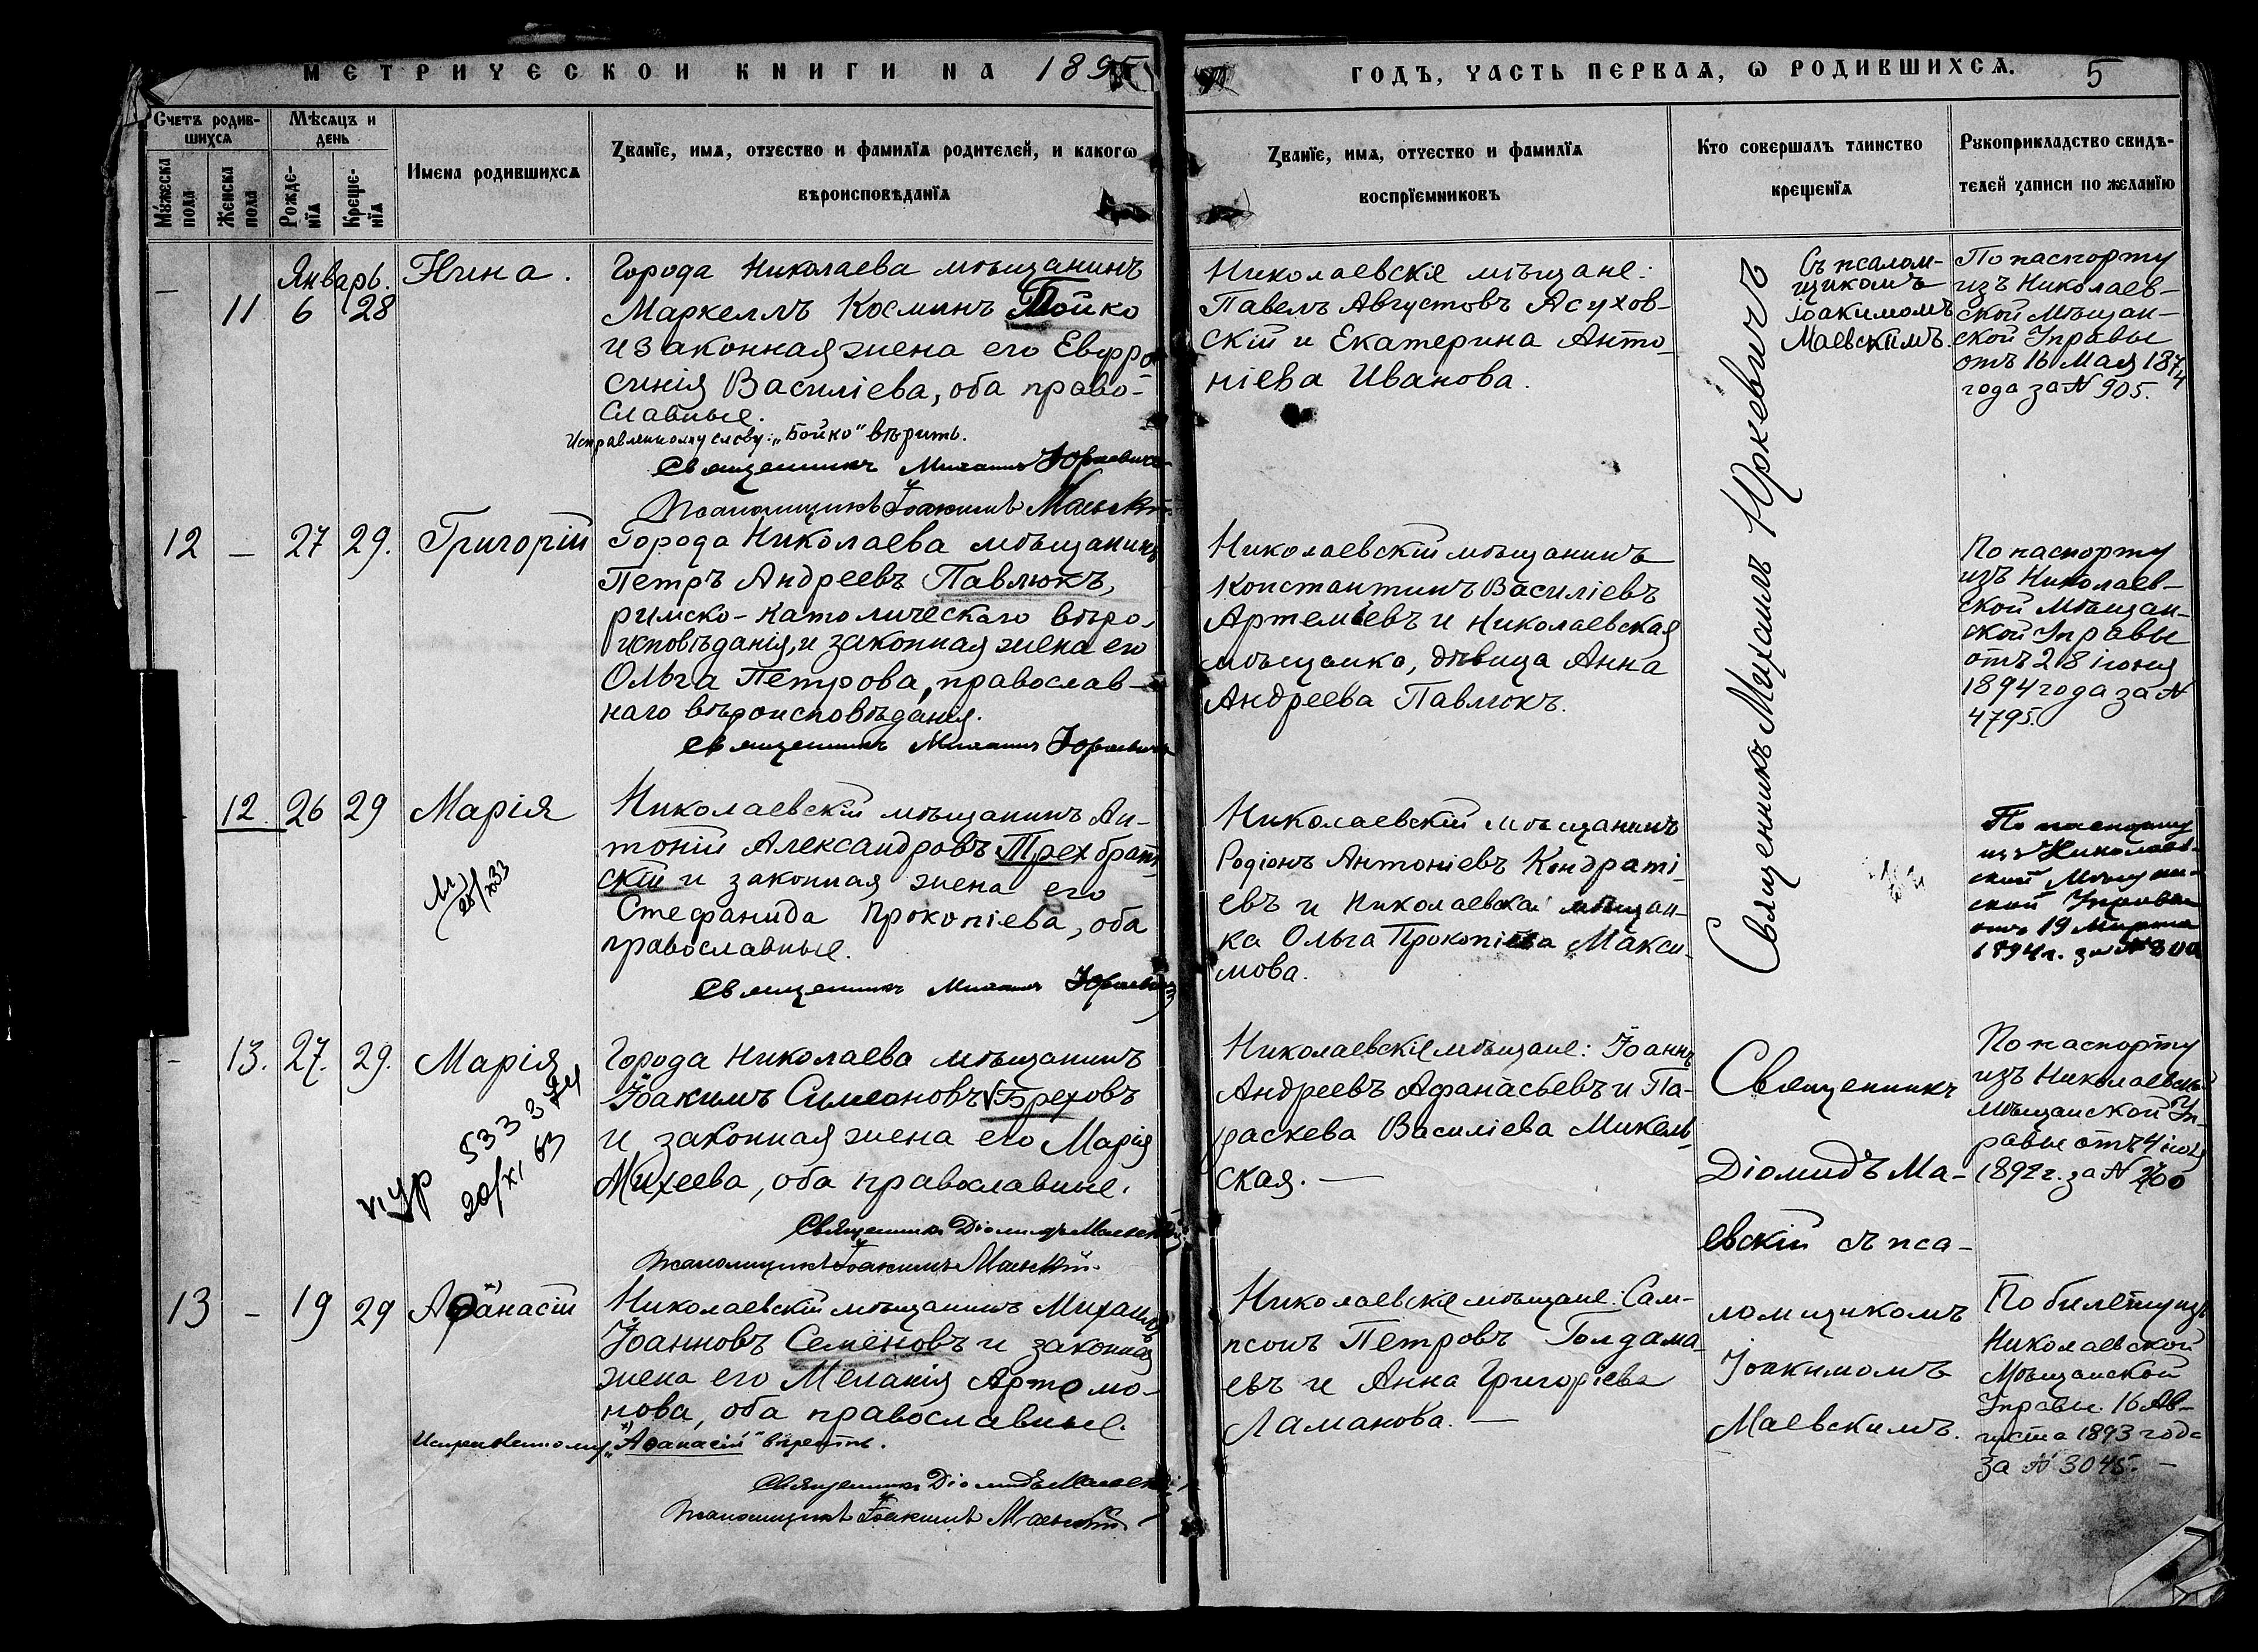 МЕТРИЧЕСКОЙ КНИГИ НА 1895
ГОДЪ, ЧАСТЬ ПЕРВАѦ, Ѡ РОДИВШИХСѦ.
5
Счетъ родив-
шихсѧ
Мѣсѧцъ и
день
Мужеска
пола
Женска
пола
Рожде-
нїѧ
Креще-
нїѧ
Имена родившихсѧ
Званїе, имѧ, отчество и фамилїѧ родителей, и какогѡ
вѣроисповѣданїѧ
Званїе, имѧ, отчество и фамилїѧ
воспрїемниковъ
Кто совершалъ таинство
крещенїѧ
Рукоприкладство свидѣ-
телей записи по желанїю
Январь.
— 11 6 28
Нина.
Города Николаева мѣщанинъ
Маркеллъ Косминъ Бойко
и законная жена его Евфро
синія Василіева, оба право-
славные.
Исправленному слову: „Бойко" вѣрить.
Священникъ Михаилъ Юркевичъ
Псаломщикъ Іоакимъ Маевскій
Николаевскіе мѣщане:
Павелъ Августовъ Асухов-
скій и Екатерина Анто-
ніева Иванова.
Священникъ Михаилъ Юркевичъ
Съ псалом-
щикомъ
Іоакимомъ
Маевскимъ.
По паспорту
изъ Николаев-
ской Мѣщан-
ской Управы
отъ 16 Мая 1874
года за № 905.
12 — 27 29.
Григорій
Города Николаева мѣщанинъ
Петръ Андреевъ Павлюкъ,
римско-католическаго вѣро-
исповѣданія, и законная жена его
Ольга Петрова, православ-
наго вѣроисповѣданія.
Священникъ Михаилъ Юркевичъ
Николаевскій мѣщанинъ
Константинъ Василіевъ
Артемьевъ и Николаевская
мѣщанка, дѣвица Анна
Андреева Павлюкъ.
По паспорту
изъ Николаев-
ской Мѣщан-
ской Управы
отъ 28 іюня
1894 года за №
4795.
12. 26 29
Марія
28/X 33
Николаевскій мѣщанинъ Ан-
тоній Александровъ Трехбрат-
скій и законная жена его
Стефанида Прокопіева, оба
православные.
Священникъ Михаилъ Юркевичъ
Николаевскій мѣщанинъ
Родіонъ Антоніевъ Кондраті-
евъ и Николаевская мѣщан-
ка Ольга Прокопіева Макси-
мова.
По паспорту
изъ Николаев-
ской Мѣщан-
ской Управы
отъ 19 Марта
1894 г. за №
— 13. 27. 29.
Марія
533374
20/XI 63
Города Николаева мѣщанинъ
Іоакимъ Симеоновъ Бреховъ
и законная жена его Марія
Михеева, оба православные.
Священникъ Діомидъ Маевскій
Псаломщикъ Іоакимъ Маевскій.
Николаевскіе мѣщане: Іоаннъ
Андреевъ Афанасьевъ и Па-
раскева Василіева Микель-
ская. —
Священникъ
Діомидъ Ма-
евскій съ пса-
ломщикомъ
Іоакимомъ
Маевскимъ.
По паспорту
изъ Николаевской
Мѣщанской Уп-
равы отъ 4 іюля
1892 г. за №
13 — 19 29
Аѳанасій
Николаевскій мѣщанинъ Михаилъ
Іоанновъ Семёновъ и законная
жена его Меланія Артемо-
нова, оба православные.
Исправленному „Аѳанасій" вѣрить.
Священникъ Діомидъ Маевскій
Псаломщикъ Іоакимъ Маевскій
Николаевскіе мѣщане: Сам-
псонъ Петровъ Голдама-
евъ и Анна Григоріева
Ламанова. —
По билету изъ
Николаевской
Мѣщанской
Управы. 16 Ав-
густа 1893 года
за № 3045. —